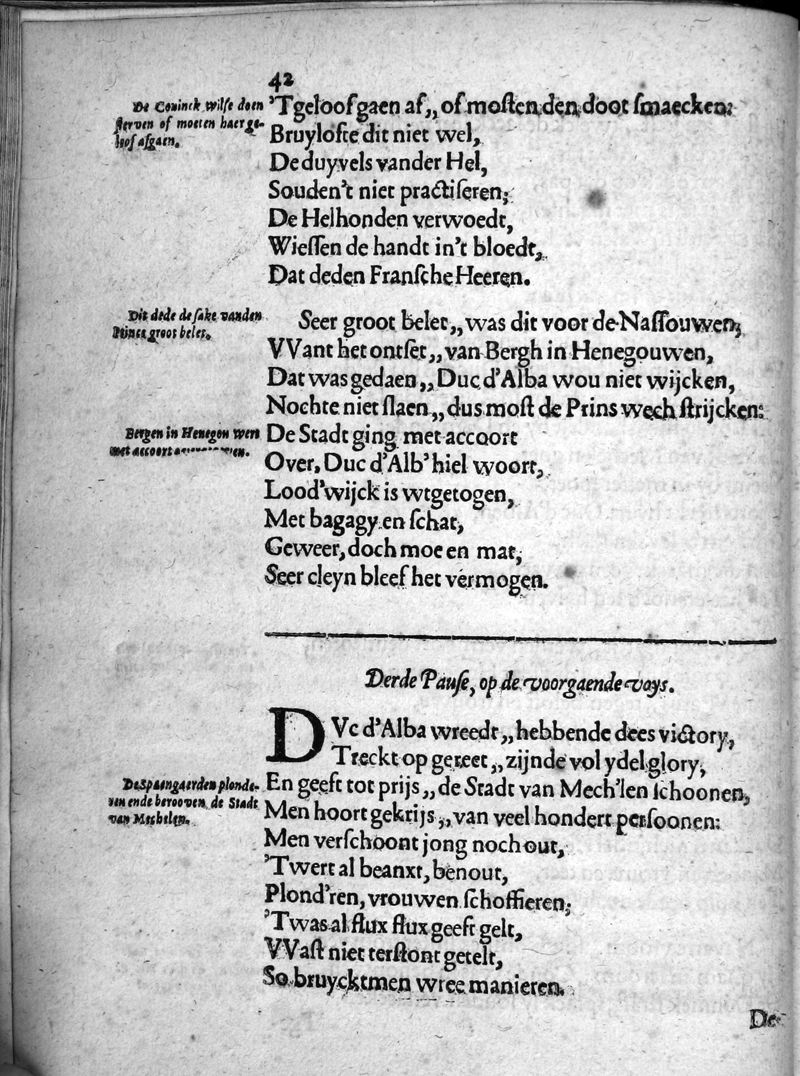 42
De Coninck wilse doen
sterven of moeten haer ge-
loof afgaen.
'Tgeloof gaen af,, of mosten den doot smaecken:
Bruylofte dit niet wel,
De duyvels vander Hel,
Souden't niet practiseren;
De Helhonden verwoedt,
Wiessen de handt in't bloedt,
Dat deden Fransche Heeren.
Dit dede de sake vanden
Prince groot belet.
Seer groot belet,, was dit voor de Nassouwen;
VVant het ontset,, van Bergh in Henegouwen,
Dat was gedaen,, Duc d'Alba wou niet wijcken,
Nochte niet slaen,, dus most de Prins wech strijcken:
Bergen in Henegou wert
met accoort
De Stadt ging met accoort
Over, Duc d'Alb' hiel woort,
Lood'wijck is wtgetogen,
Met bagagy en schat,
Geweer, doch moe en mat,
Seer cleyn bleef het vermogen.
Derde Pause, op de voorgaende voys.
DVc d'Alba wreedt,, hebbende dees victory,
Treckt op gereet,, zijnde vol ydel glory,
De Spaengaerden plonde-
ren ende berooven de Stadt
van Mechelen.
En geeft tot prijs,, de Stadt van Mech'len schoonen,
Men hoort gekrijs,, van veel hondert persoonen:
Men verschoont jong noch out,
'Twert al beanxt, benout,
Plond'ren, vrouwen schoffieren;
'Twas al flux flux geeft gelt,
VVast niet terstont getelt,
So bruycktmen wree manieren.
De